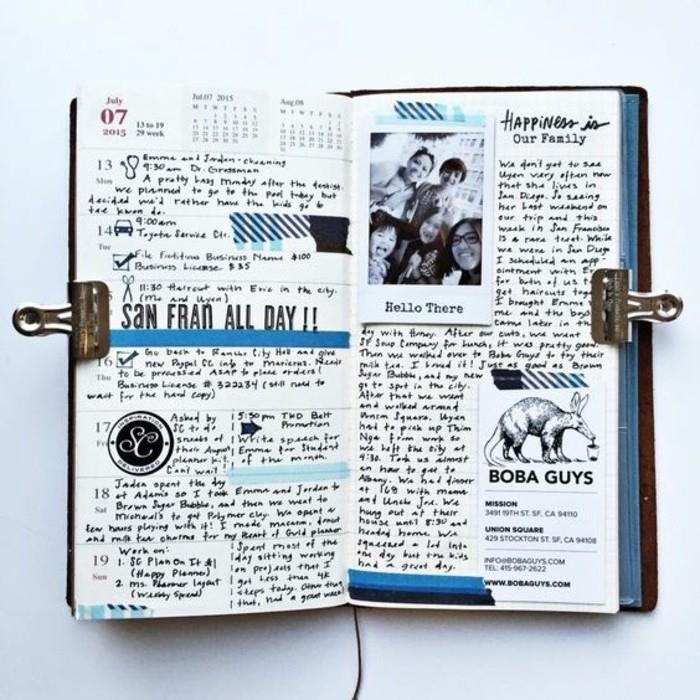 July
07
2015
13 to 19
29 week
Jul.07 2015
Aug.08
M T W T F S S
M T W T F S S
13
Mon
Emma and Jorden - cleaning
9:30am Dr. Grossman
A pretty lazy Monday after the dentist.
we planned to go to the pool today but
decided we'd rather have the kids go to
tae kwon do.
14
Tue
9:00am
Toyota Service Ctr.
File Fictitious Business Name $100
Business License $35
11:30 Haircut with Eric in the city.
(me and Uyen)
SAN FRAN ALL DAY!!
16
Thu
Go back to Rancho City Hall and give
new Paypal CC info to Maricruz. Needs
to be processed ASAP to place orders!
Business License # 322234 (still need to
wait for the hard copy)
17
Fri
INSPIRATION
SC
DELIVERED
Asked by
SC to do
sneaks of
their August
planner kit.
Can't wait!
5:30pm TKD Belt
Promotion
Write speech for
Emma for Student
of the month.
18
Sat
Jaden spent the day
at Adams so I took Emma and Jorden to
Brown Sugar Bubble, and then we went to
Michael's to get Polymer clay. We spent a
few hours playing with it! I made macaron, donut
and milk tea charms for my Heart of Gold planner
19
Sun
Work on:
1. SC Plan On It #1
(Happy Planner)
2. ms. Planner layout
(Weekly Spread)
Spent most of the
day sitting working
on projects that I
got less than 4K
steps today. Other than
that, had a great week!
Hello There
HAPPINESS is
Our Family
We don't get to see
Uyen very often now
that she lives in
San Diego. So seeing
her last weekend on
our trip and this
week in San Francisco
is a rare treat. While
we were in San Diego
I scheduled an app-
ointment with
for both of us to
get haircuts
I brought Emma
me and the boys
came later in the
day with Honey. After our cuts, we went
SF Soup Company for lunch, it was pretty good.
Then we walked over to Boba Guys to try their
milk tea. I loved it! Just as good as Brown
Sugar Bubble, and my new
go to spot in the city.
After that we went
and walked around
Union Square. Uyen
had to pick up Thim
Nga from work so
we left the city at
4:30. Took us almost
an hour to get to
Albany. We had dinner
at 168 with mama
and Uncle Joe. We
hung out at their
house until 8:30 and
headed home. We
squeezed a lot into
one day but the kids
had a great day.
BOBA GUYS
MISSION
3491 19TH ST. SF, CA 94110
UNION SQUARE
429 STOCKTON ST. SF, CA 94108
INFO@BOBAGUYS.COM
TEL: 415-967-2622
WWW.BOBAGUYS.COM